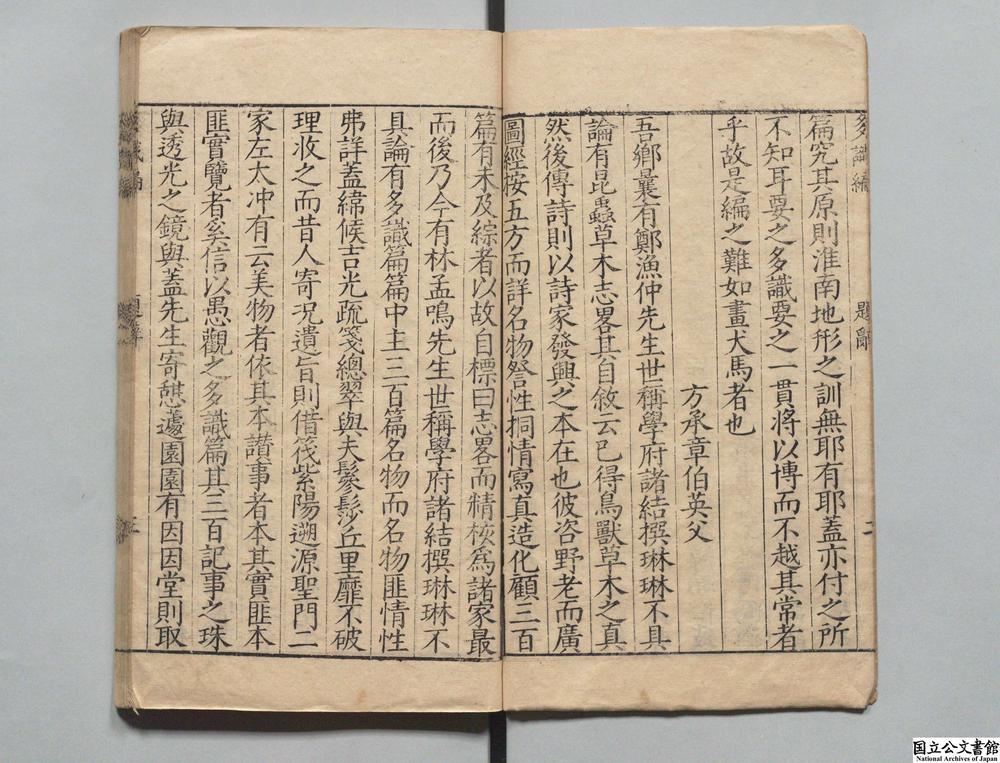 多識編
題辭
二
篇究其原則淮南地形之訓無耶有耶蓋亦付之所
不知耳要之多識要之一貫將以博而不越其常者
乎故是編之難如畫犬馬者也
方承章伯英父
吾鄉曩有鄭漁仲先生世稱學府諸結撰琳琳不具
論有昆蟲草木志畧其自敘云已得鳥獸草木之真
然後傳詩則以詩家發興之本在也彼咨野老而廣
圖經按五方而詳名物詧性挏情寫真造化顧三百
篇有未及綜者以故自標曰志畧而精核爲諸家最
而後乃今有林孟鳴先生世稱學府諸結撰琳琳不
具論有多識篇篇中主三百篇名物而名物匪情性
弗詳蓋緯候吉光疏箋總翠與夫髮髟沙丘里靡不破
理收之而昔人寄况遺旨則借筏紫陽遡源聖門二
家左太冲有云美物者依其本讃事者本其實匪本
匪實覽者奚信以愚觀之多識篇其三百記事之珠
與透光之鏡與蓋先生寄憇蘧園園有因因堂則取
三
国立公文書館
National Archives of Japan